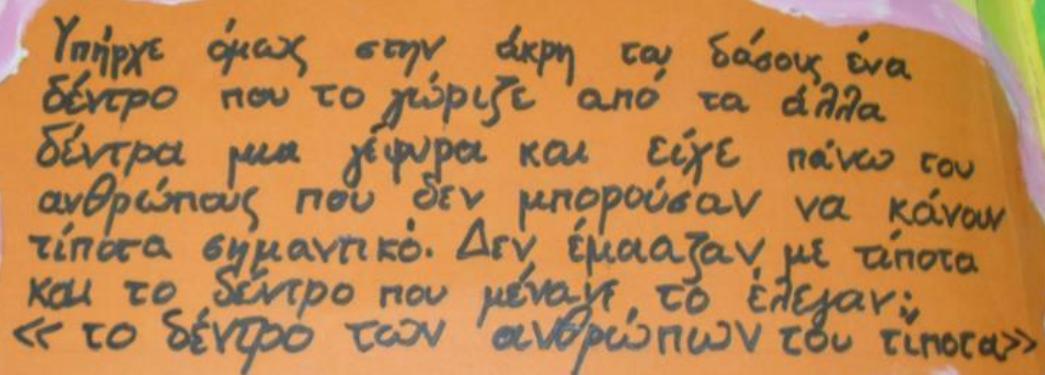 Υπήρχε όμως στην άκρη του δάσους ένα
δέντρο που το χώριζε από τα άλλα
δέντρα μια γέφυρα και είχε πάνω του
ανθρώπους που δεν μπορούσαν να κάνουν
τίποτα σημαντικό. Δεν έμοιαζαν με τίποτα
και το δέντρο που μένανε το έλεγαν:
<< το δέντρο των ανθρώπων του τίποτα>>